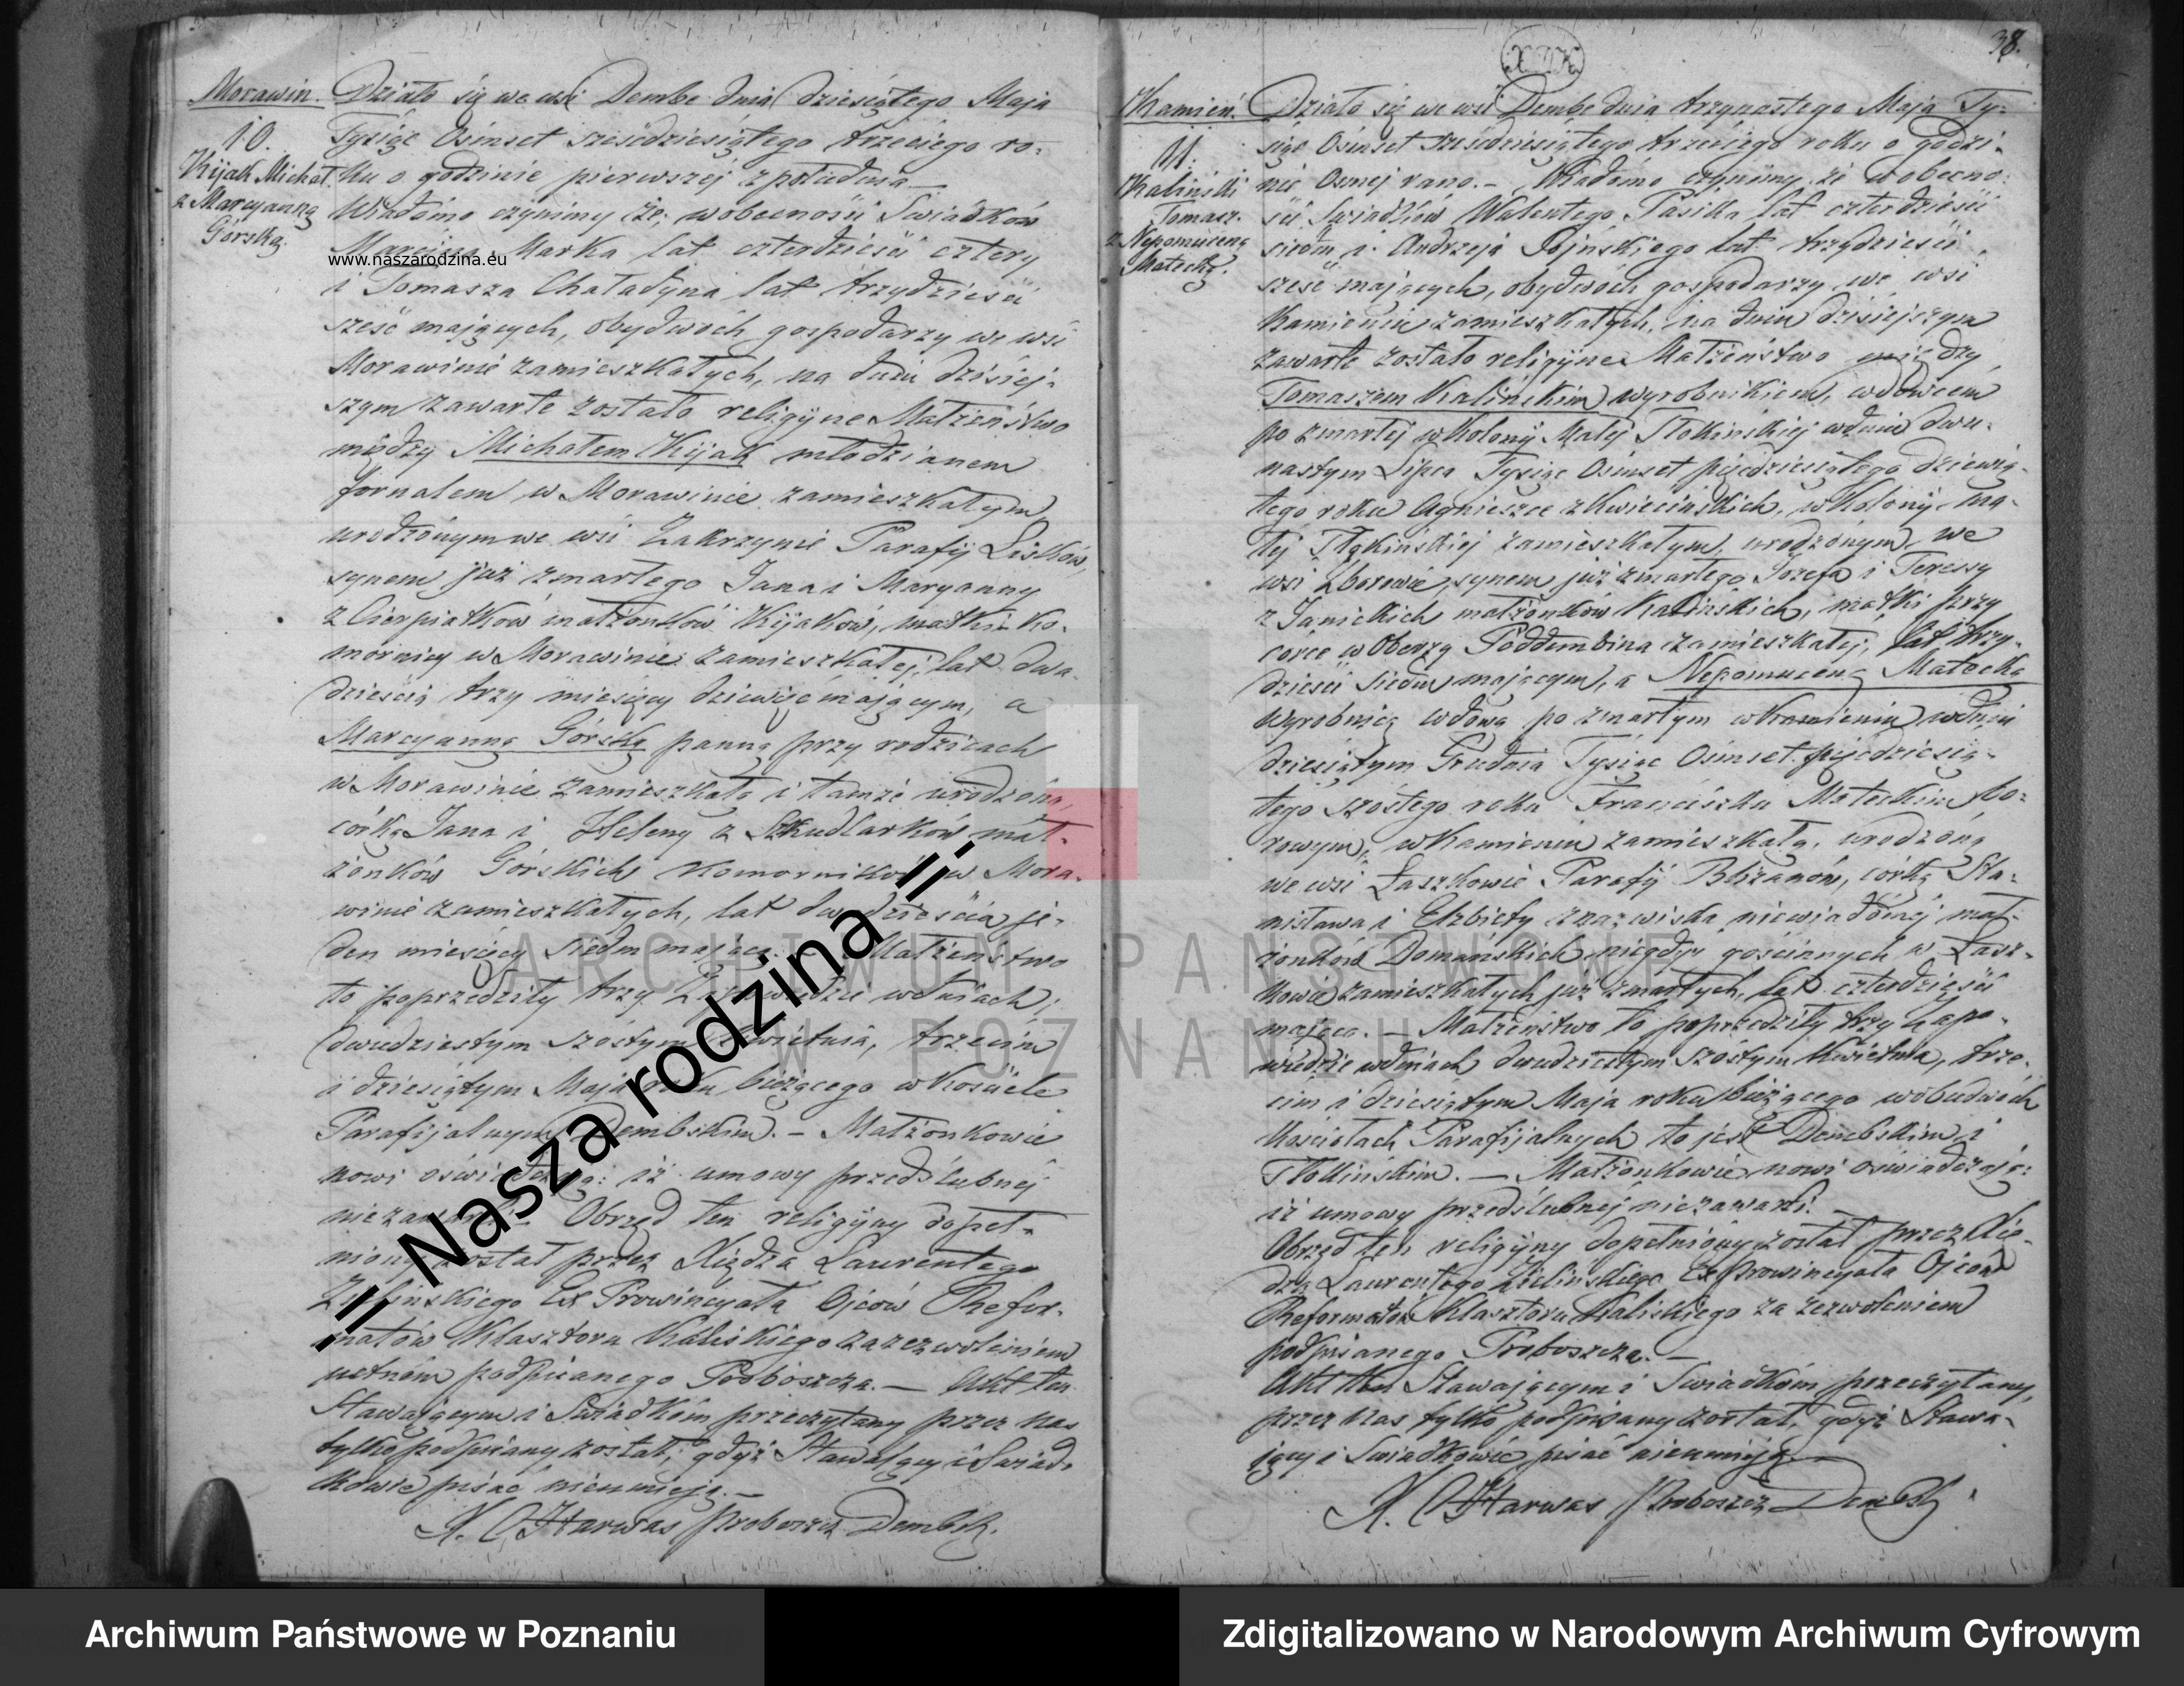 Morawin.
10.
Kijak Michał
z Maryanną
Górską.
Działo się we wsi Dembe dnia dziesiątego Maja
Tysiąc Ośmset sześćdziesiątego trzeciego ro-
ku o godzinie pierwszej z południa —
Wiadomo czynimy że, w obecności Świadków
Marcina Marka lat czterdzieści cztery
www.naszarodzina.eu
i Tomasza Chaładyna lat trzydzieści
sześć mających, obydwóch gospodarzy we wsi
Morawinie zamieszkałych, na dniu dzisiej-
szym zawarte zostało religijne Małżeństwo
między Michałem Kijak młodzianem
fornalem w Morawinie zamieszkałym
urodzonym we wsi Zakrzynie Parafij Lisków,
synem już zmarłego Jana i Maryanny
z Cierpiatków małżonków Kijaków, matki ko-
mornicy w Morawinie zamieszkałej, lat dwa-
dzieścia trzy miesięcy dziewięć mającym, a
Maryanną Górską panną przy rodzicach
w Morawinie zamieszkałą i tamże urodzoną,
córką Jana i Heleny z Szkudlarków mał-
żonków Górskich komorników w Mora-
winie zamieszkałych, lat dwadzieścia je-
den miesięcy siedm mającą. — Małżeństwo
to poprzedziły trzy Zapowiedzie w dniach;
dwudziestym szóstym Kwietnia, trzecim
i dziesiątym Maja roku bieżącego w Kościele
Parafijalnym Dembskim. — Małżonkowie
nowi oświadczają: iż umowy przedślubnej
nie zawarli — Obrzęd ten religijny dopeł-
niony został przez Xiędza Laurentego
Zielinskiego Ex Prowincyała Ojców Refor-
matów Klasztoru Kaliskiego za zezwoleniem
ustnem podpisanego Proboszcza. — Akt ten
Stawającym i Świadkom przeczytany przez nas
tylko podpisany został, gdyż Stawający i Świad-
kowie pisać nieumieją. —
X. Harwas Proboszcz Dembsk.
= Nasza rodzina =
38.
Kamień.
11.
Kaliński
Tomasz.
z Nepomuceną
Małecką.
Działo się we wsi Dembe dnia trzynastego Maja Ty-
siąc Ośmset sześćdziesiątego trzeciego roku o godzi-
nie Osmej rano. — Wiadomo czynimy że w obecno-
ści Świadków Walentego Pasika lat czterdzieści
siedm i Andrzeja lat trzydzieści
sześć mających, obydwóch gospodarzy we wsi
Kamieniu zamieszkałych, na dniu dzisiejszym
zawarte zostało religijne Małżeństwo między
Tomaszem Kalińskim wyrobnikiem, wdowcem
po zmarłej w Kolonij Małej Tłokińskiej w dniu dwu-
nastym Lipca Tysiąc Ośmset pięćdziesiątego dziewią-
tego roku Agnieszce z Kwiecińskich, w Kolonij ma-
łej Tłokińskiej zamieszkałym, urodzonym we
wsi Zborowie, synem już zmarłego Józefa i Teressy
z Janickich małżonków Kalińskich, matki przy
córce w Oberzy Poddembina zamieszkałej, lat trzy-
dzieści siedm mającym, a Nepomuceną Małecką
wyrobnicą wdową po zmarłym w Kamieniu w dniu
dziesiątym Grudnia Tysiąc Ośmset pięćdziesią-
tego szóstego roku Franciszku Małeckim bo-
rowym, w Kamieniu zamieszkałą, urodzoną
we wsi Łaszkowie Parafij Blizanów, córką Sta-
nisława i Elżbiety z nazwiska niewiadomej mał-
żonków Domańskich niegdyś gościnnych w Łasz-
kowie zamieszkałych już zmarłych, lat czterdzieści
mającą. — Małżeństwo to poprzedziły trzy Zapo-
wiedzie w dniach dwudziestym szóstym Kwietnia, trze-
cim i dziesiątym Maja roku bieżącego w obudwóch
Kościołach Parafijalnych to jest Dembskim i
Tłokińskim. — Małżonkowie nowi oświadczają:
iż umowy przedślubnej nie zawarli. —
Obrzęd ten religijny dopełniony został przez Xię-
dza Laurentego Zielinskiego Ex Prowincyała Ojców
Reformatów Klasztoru Kaliskiego za zezwoleniem
podpisanego Proboszcza. —
Akt ten Stawającym i Świadkom przeczytany,
przez nas tylko podpisany został, gdyż Stawa-
jący i Świadkowie pisać nieumieją. —
X. Harwas Proboszcz Dembsk.
ARCHIWUM PAŃSTWOWE
W POZNANIU
Archiwum Państwowe w Poznaniu
Zdigitalizowano w Narodowym Archiwum Cyfrowym